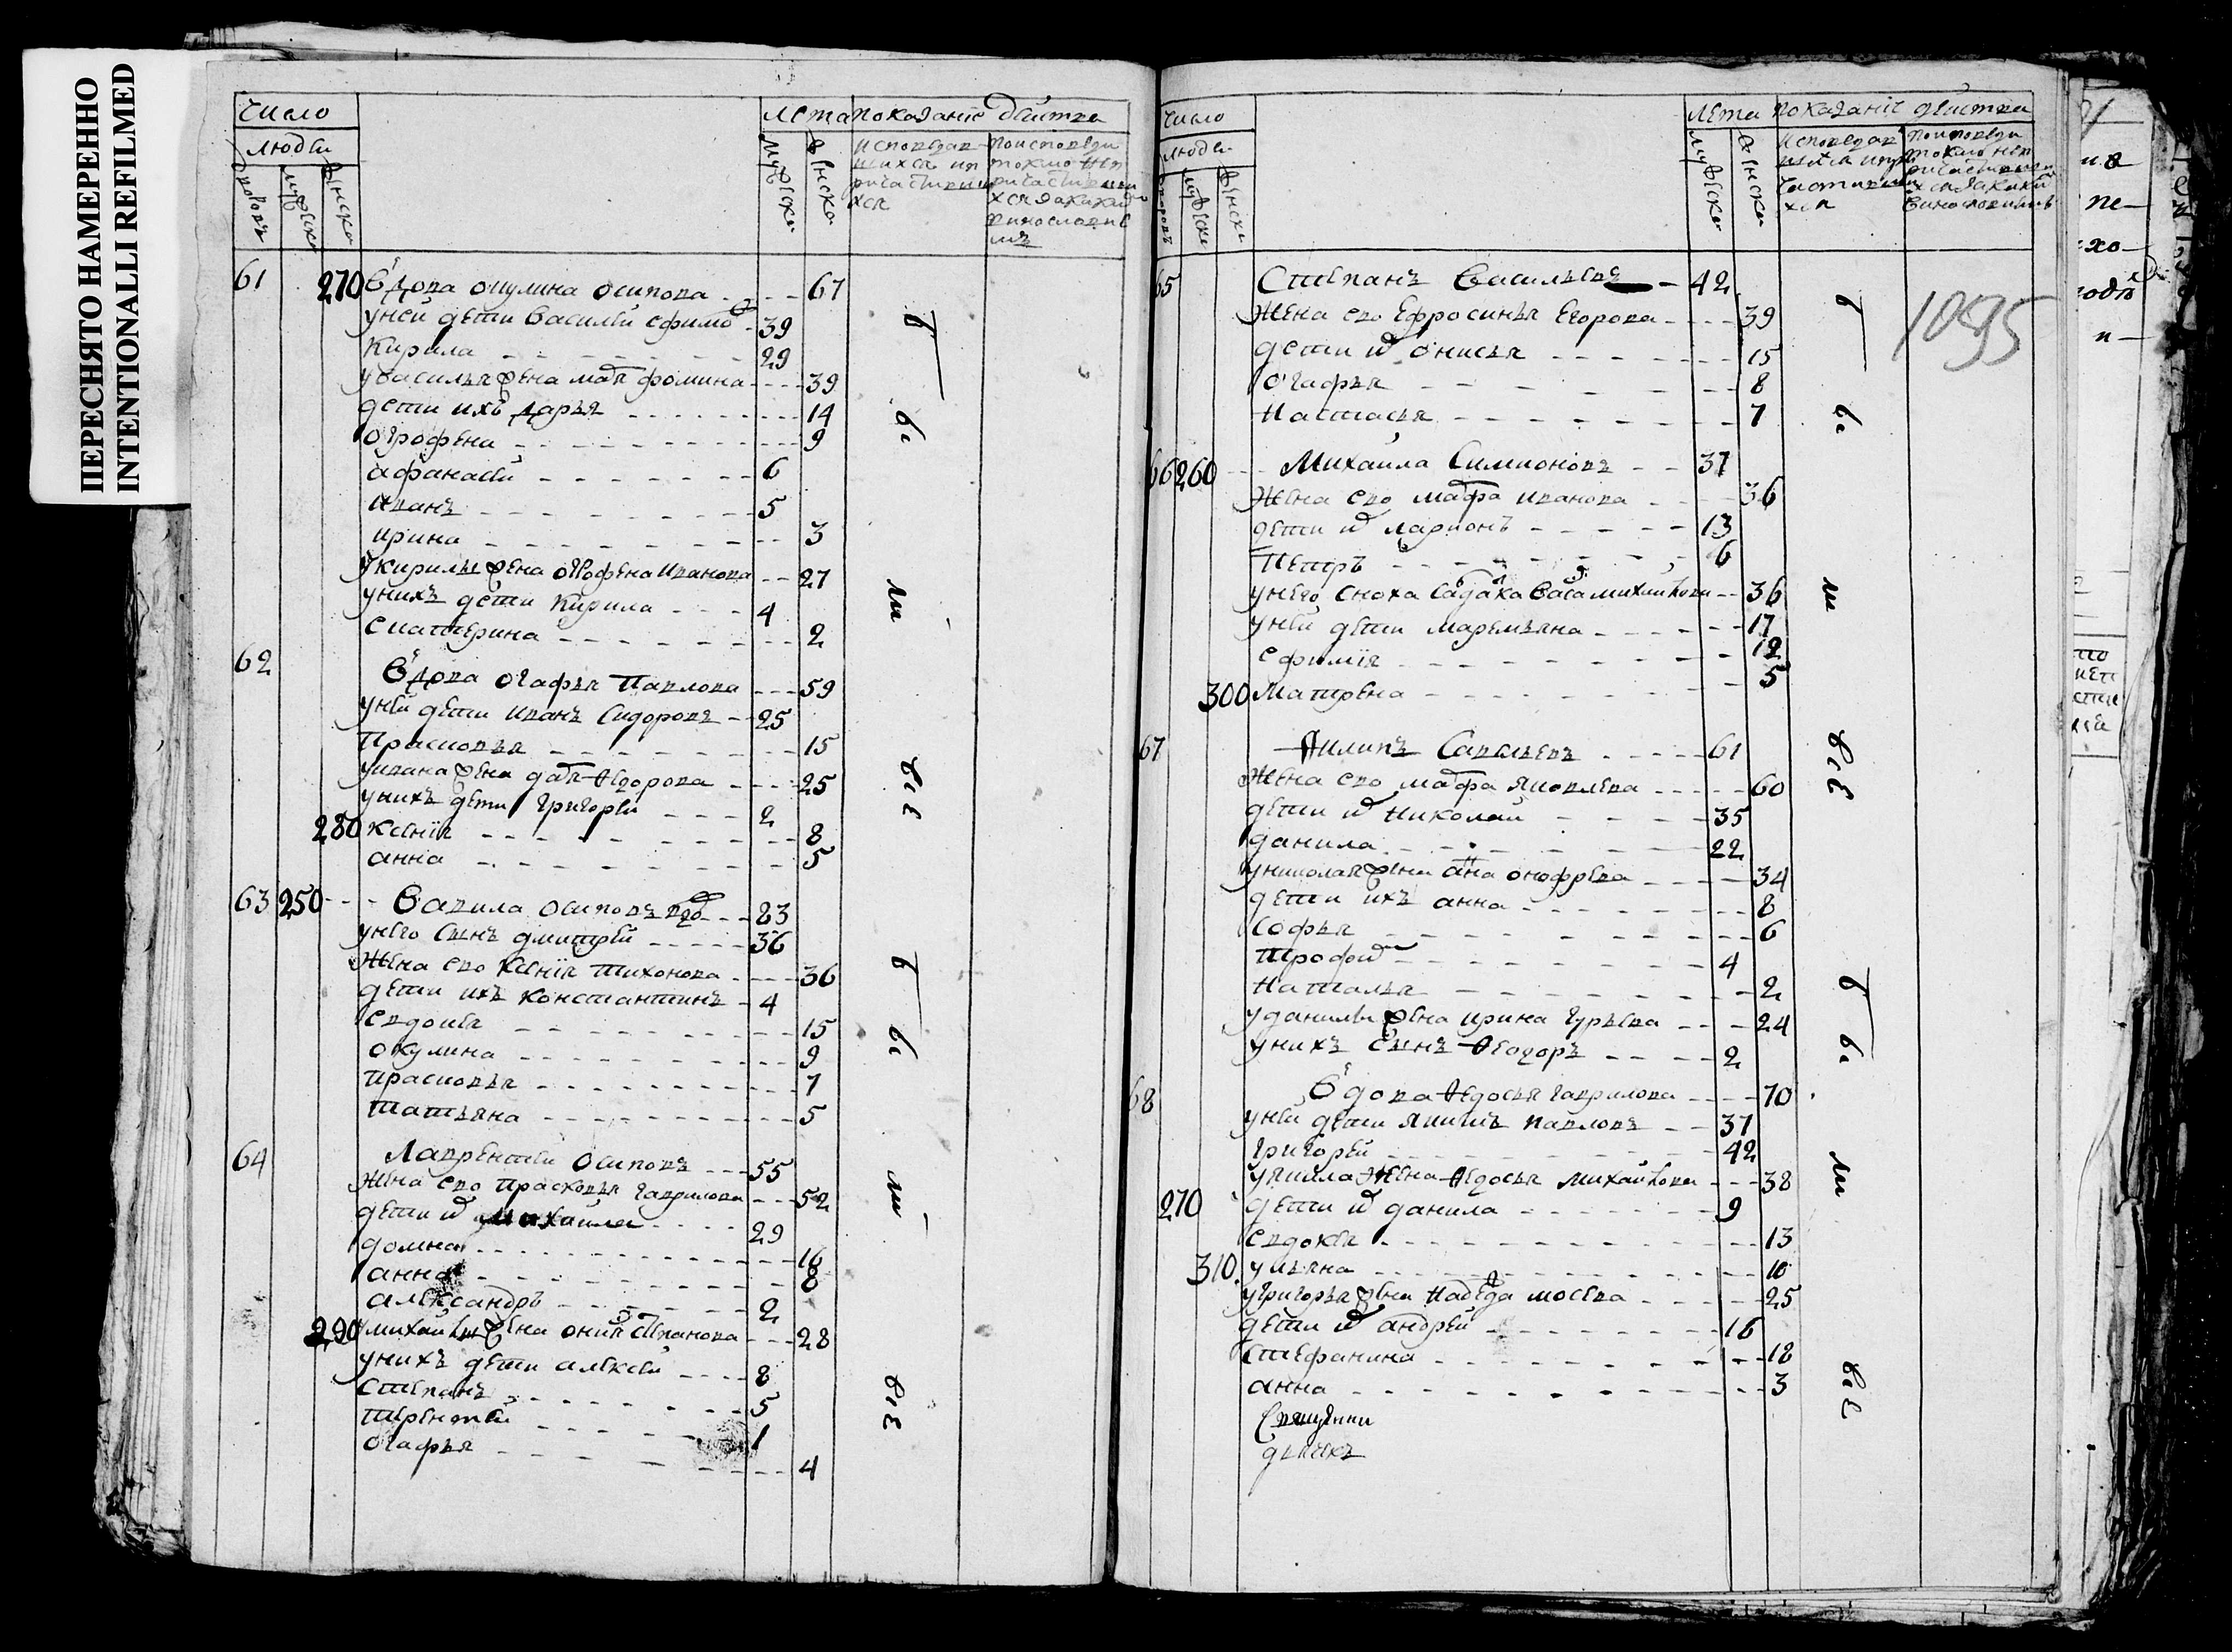 ПЕРЕСНЯТО НАМЕРЕННО
INTENTIONALLI REFILMED
число
людей
дворовъ
мужеска
женска
лета
показание действа
мужеска
женска
исповедав
шихся ип
ричастивши
хся
поисповеди
токмо неп
ричастивши
хся закаки
винословие
мъ
61 270 вдова окулина осипова - - - 67
уней дети василей ефимов - 39
кирила - - - 29
уваселья жена мария фомина - - - 39
дети ихъ дарья - - - 14
огрофена - - - 9
афанасей - - - 6
иванъ - - - 5
ирина - - - 3
укирилы жена огрофена иванова - - 27
унихъ дети кирила - - - 4
екатерина - - - 2
62 вдова огафья павлова - - - 59
уней дети иванъ сидоровъ - 25
прасковья - - - 15
уивана жена дарья федорова - - - 25
унихъ дети григорей - - - 2
280 ксения - - - 8
анна - - - 5
63 250 - - - вавила осиповъ вдов - - - 83
унего сынъ дмитрей - - - 36
жена ево ксения тихонова - - - 36
дети ихъ константинъ - 4
евдокея - - - 15
окулина - - - 9
прасковья - - - 7
татьяна - - - 5
64 лаврентей осиповъ - - - 55
жена ево прасковья гаврилова - - - 52
дети их михайла - - - 29
домна - - - 16
анна - - - 8
александръ - - - 2
290 умихайлы жена степанова - - - 28
унихъ дети алексей - - - 8
степанъ - - - 5
терентей - - - 1
огафья - - - 4
в
се
ли
все
в
се
ли
все
число
людей
дворовъ
мужеска
женска
лета
показание действа
мужеска
женска
исповедав
шихся ипри
частивши
хся
поисповеди
токмо неп
ричастивши
хся закаки
винословиемъ
1095
65 степанъ васильевъ - 42
жена ево ефросинья егорова - - - 39
дети их онисья - - - 15
огафья - - - 8
настасья - - - 7
66 260 - - михайла симионовъ - - 37
жена ево марфа иванова - - - 36
дети их ларионъ - - - 13
петръ - - - 6
унего сноха солдатка михайлова - - 36
уней дети маремьяна - - - 17
ефимия - - - 12
300 матрена - - - 5
67 филипъ савельевъ - - - 61
жена ево марфа яковлева - - - 60
дети их николай - - - 35
данила - - - 22
униколая жена анна онофрева - - - 34
дети ихъ анна - - - 8
софья - - - 6
трофим - - - 4
наталья - - - 2
уданилы жена ирина гурьева - - - 24
унихъ сынъ феодоръ - - - 2
68 вдова федосья гаврилова - - - 70
уней дети якимъ павловъ - - 37
григорей - - - 42
уякима жена федосья михайлова - - - 38
270 дети их данила - - - 9
евдокея - - - 13
310 ульяна - - - 10
угригорья жена надежда мосева - - - 25
дети их андрей - - - 16
стефанина - - - 18
анна - - - 3
священни
дьячекъ
в
се
ли
все
в
се
ли
все